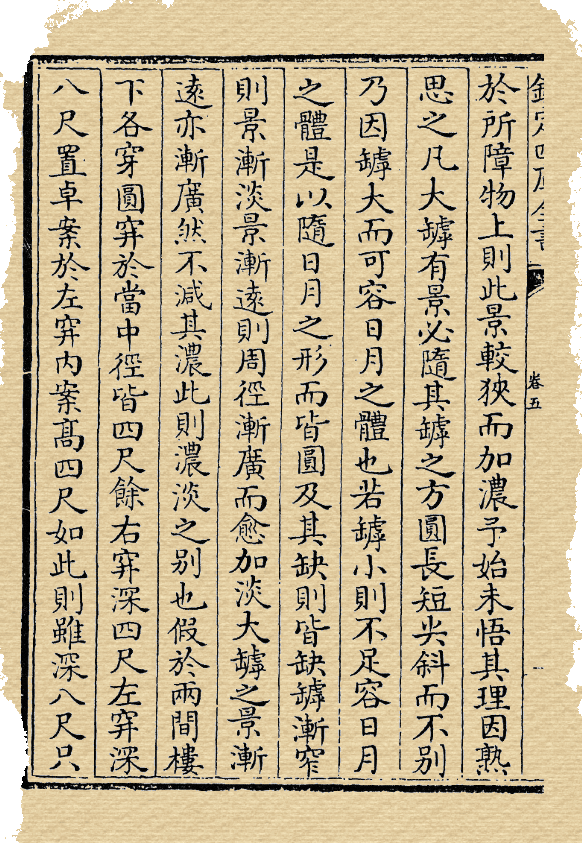 欽定四庫全書
卷五
於所障物上則此景較狹而加濃予始未悟其理因熟
思之凡大罅有景必隨其罅之方圓長短尖斜而不別
乃因罅大而可容日月之體也若罅小則不足容日月
之體是以隨日月之形而皆圓及其缺則皆缺罅漸窄
則景漸淡景漸遠則周徑漸廣而愈加淡大罅之景漸
遠亦漸廣然不減其濃此則濃淡之别也假於兩間樓
下各穿圓穽於當中徑皆四尺餘右穽深四尺左穽深
八尺置卓案於左穽内案高四尺如此則雖深八尺只